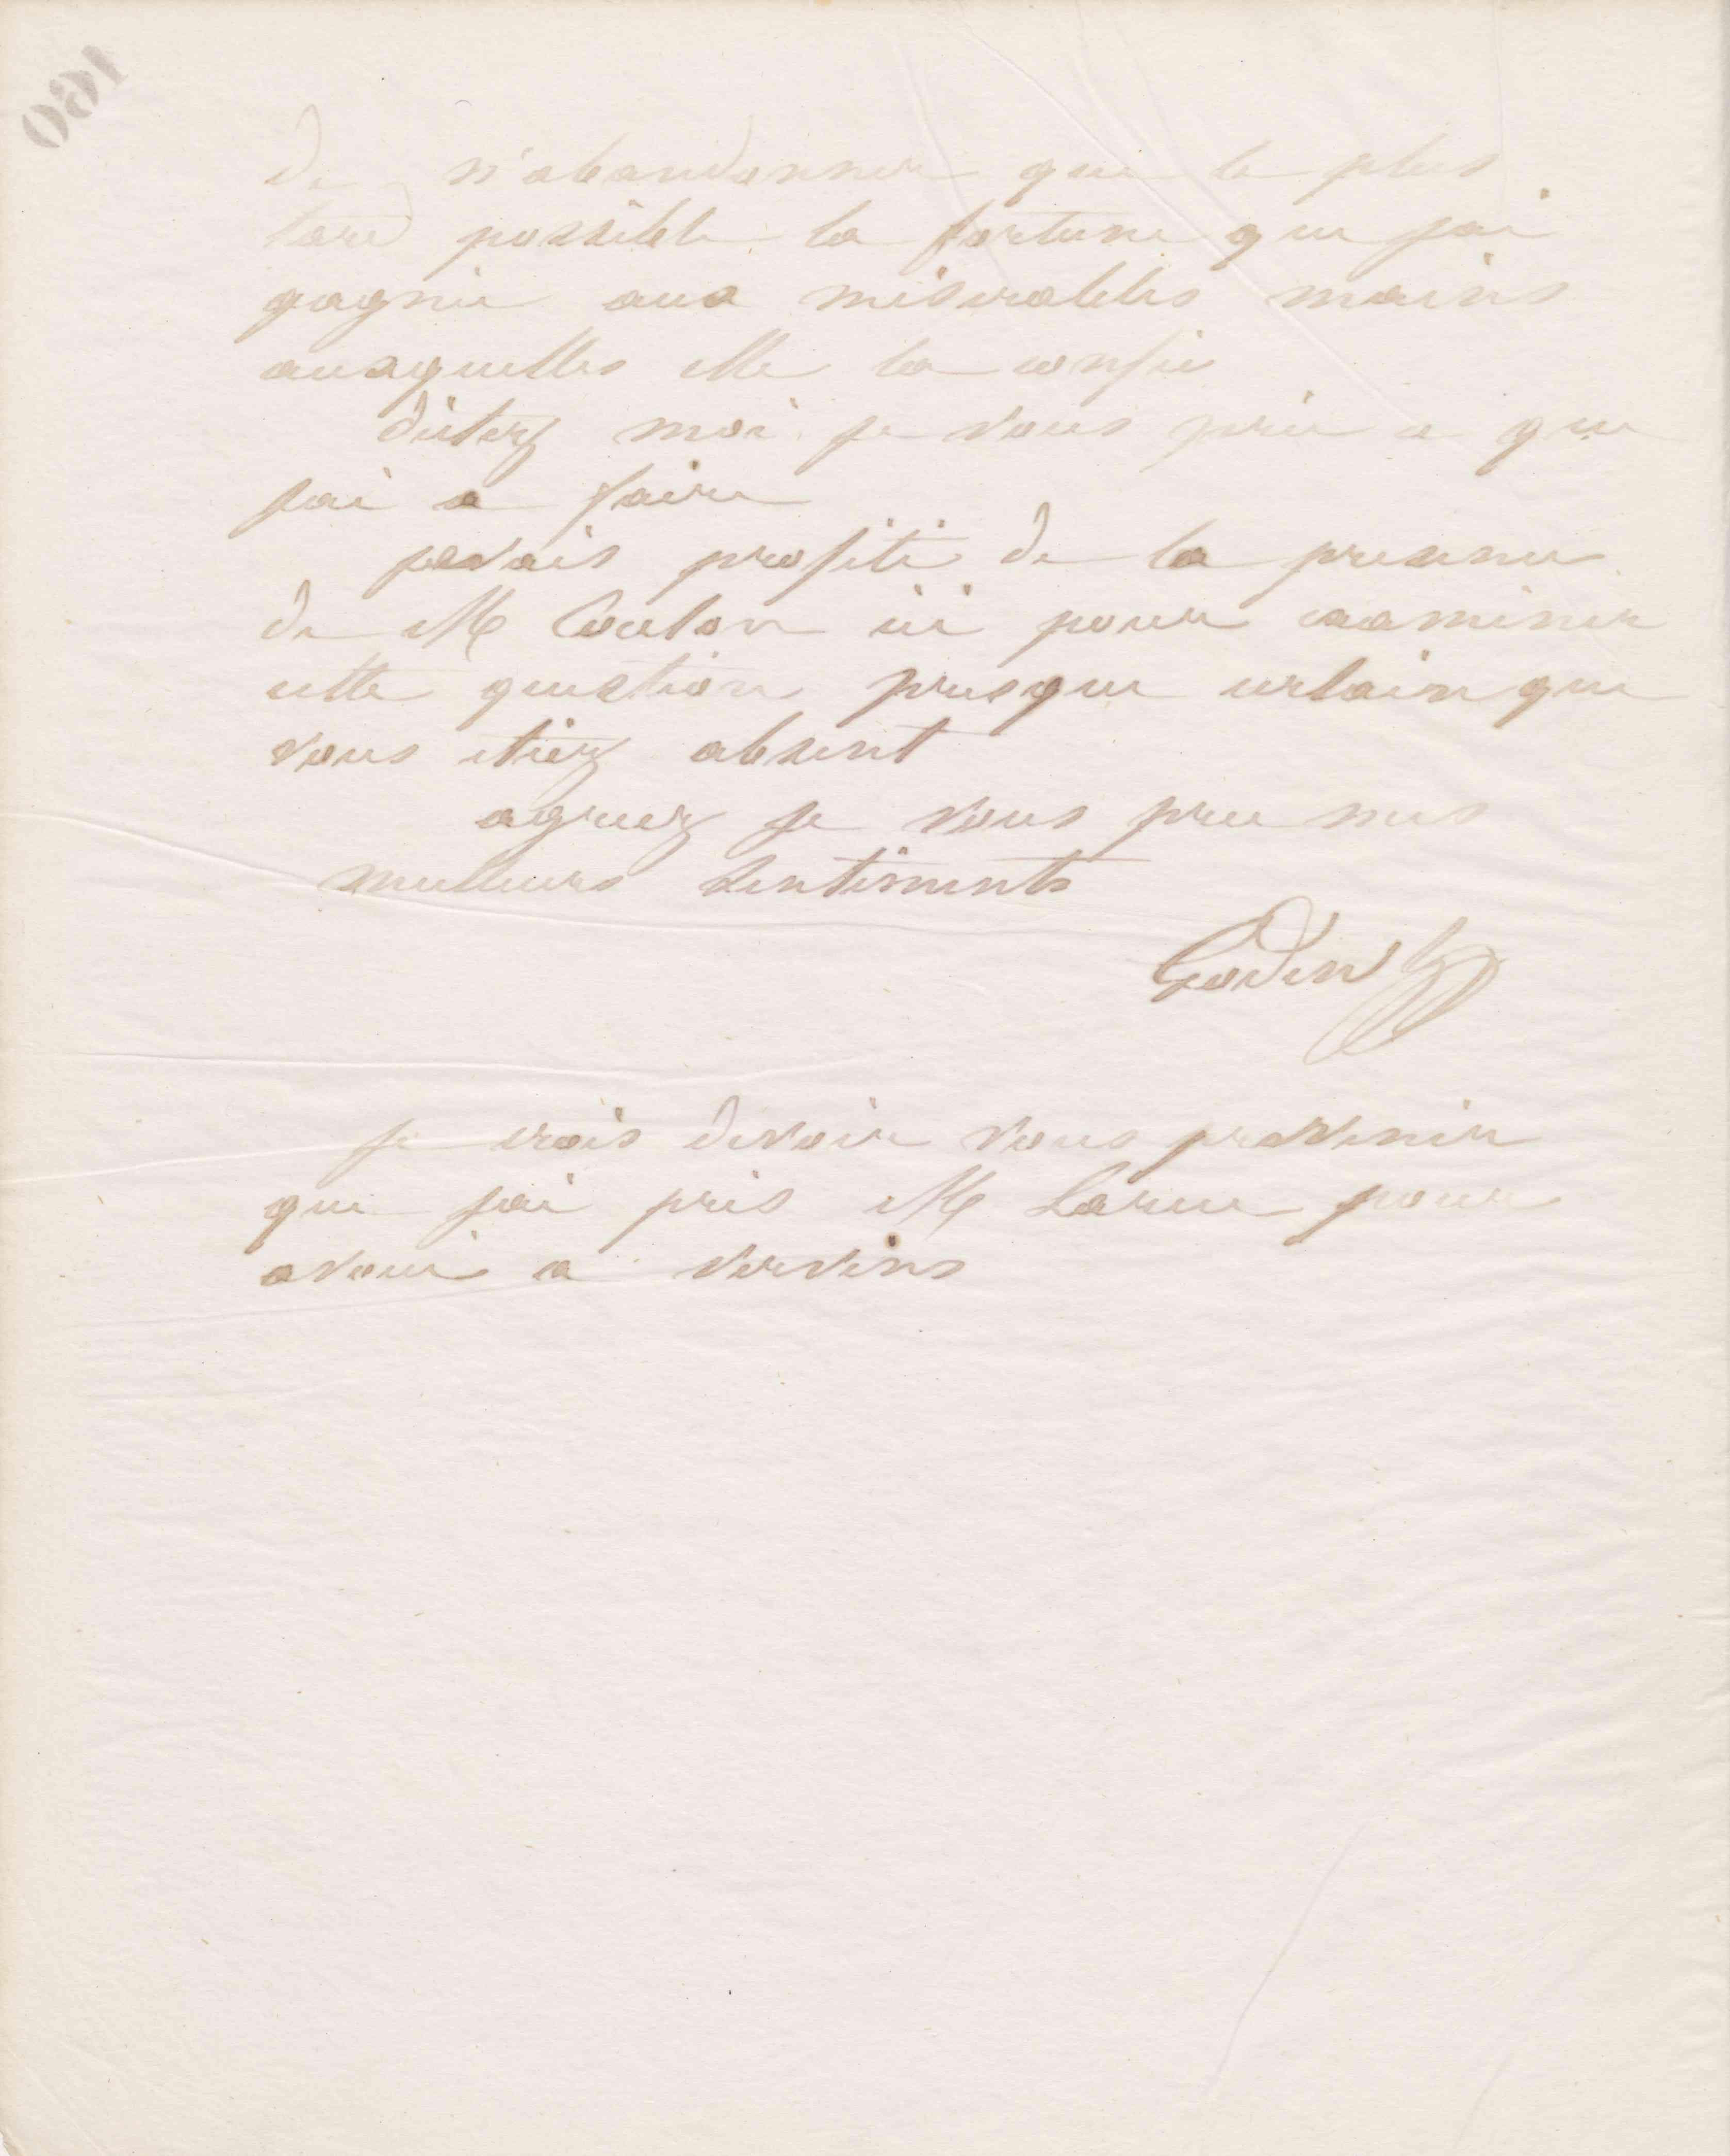 160
de n'abandonner que le plus
tard possible la fortune que jai
gagnée aux miserables mains
auxquelles elle la confie
dictez moi je vous prie ce que
jai a faire
javais profité de la presence
de M Coulon ici pour examiner
cette question presque certain que
vous etiez absent
agreez je vous prie mes
meilleurs sentiments
Godin
je crois devoir vous prevenir
que jai pris M Larue pour
avoué a Vervins